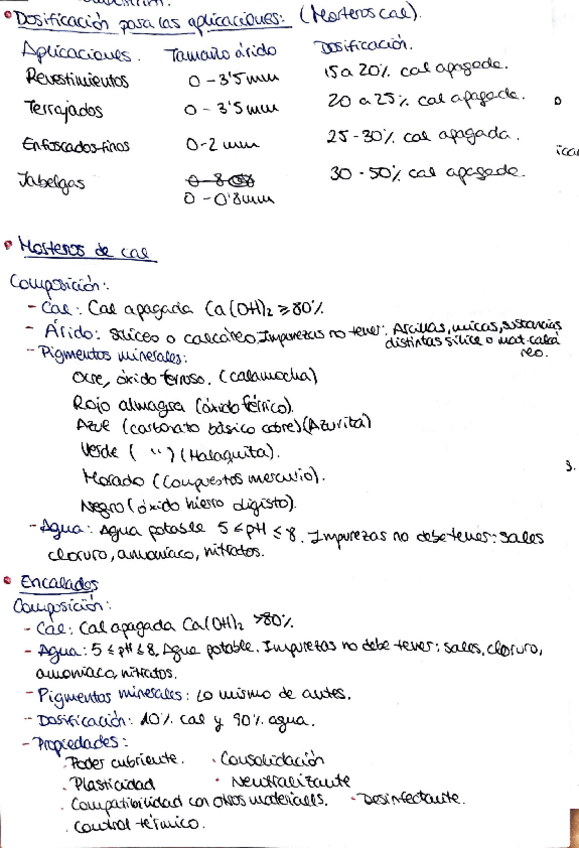 Dosificación para las aplicaciones: (Morteros cal).
Aplicaciones. Tamaño árido Dosificación.
Revestimientos 0-3'5mm 15 a 20% cal apagada.
Terrajados 0-3'5mm 20 a 25% cal apagada.
Enfoscados finos 0-2 mm 25-30% cal apagada.
Jabelgas 30-50% cal apagada.
0-0'8mm
Morteros de cal
Composición:
- Cal: Cal apagada Ca(OH)₂ ≥80%
- Árido: Silíceo o calcáreo. Impurezas no tener: Arcillas, micas, sustancias
distintas sílice o mat. calcá
reo.
- Pigmentos minerales:
Ocre, óxido ferroso. (Calamocha)
Rojo almagra (óxido férrico).
Azul (carbonato básico cobre) (Azurita)
Verde ( " ) (Malaquita).
Morado (Compuestos mercurio).
Negro (óxido hierro digisto).
- Agua: Agua potable 5 ≤ pH ≤ 8. Impurezas no debe tener: sales
cloruro, amoníaco, nitratos.
Encalados
Composición:
- Cal: Cal apagada Ca(OH)₂ >80%.
- Agua: 5 ≤ pH ≤ 8, Agua potable. Impurezas no debe tener: sales, cloruro,
amoníaco, nitratos.
- Pigmentos minerales: Lo mismo de antes.
- Dosificación: 10% cal y 90% agua.
- Propiedades:
· Poder cubriente. · Consolidación
· Plasticidad · Neutralizante
· Compatibilidad con otros materiales. · Desinfectante.
· Control térmico.